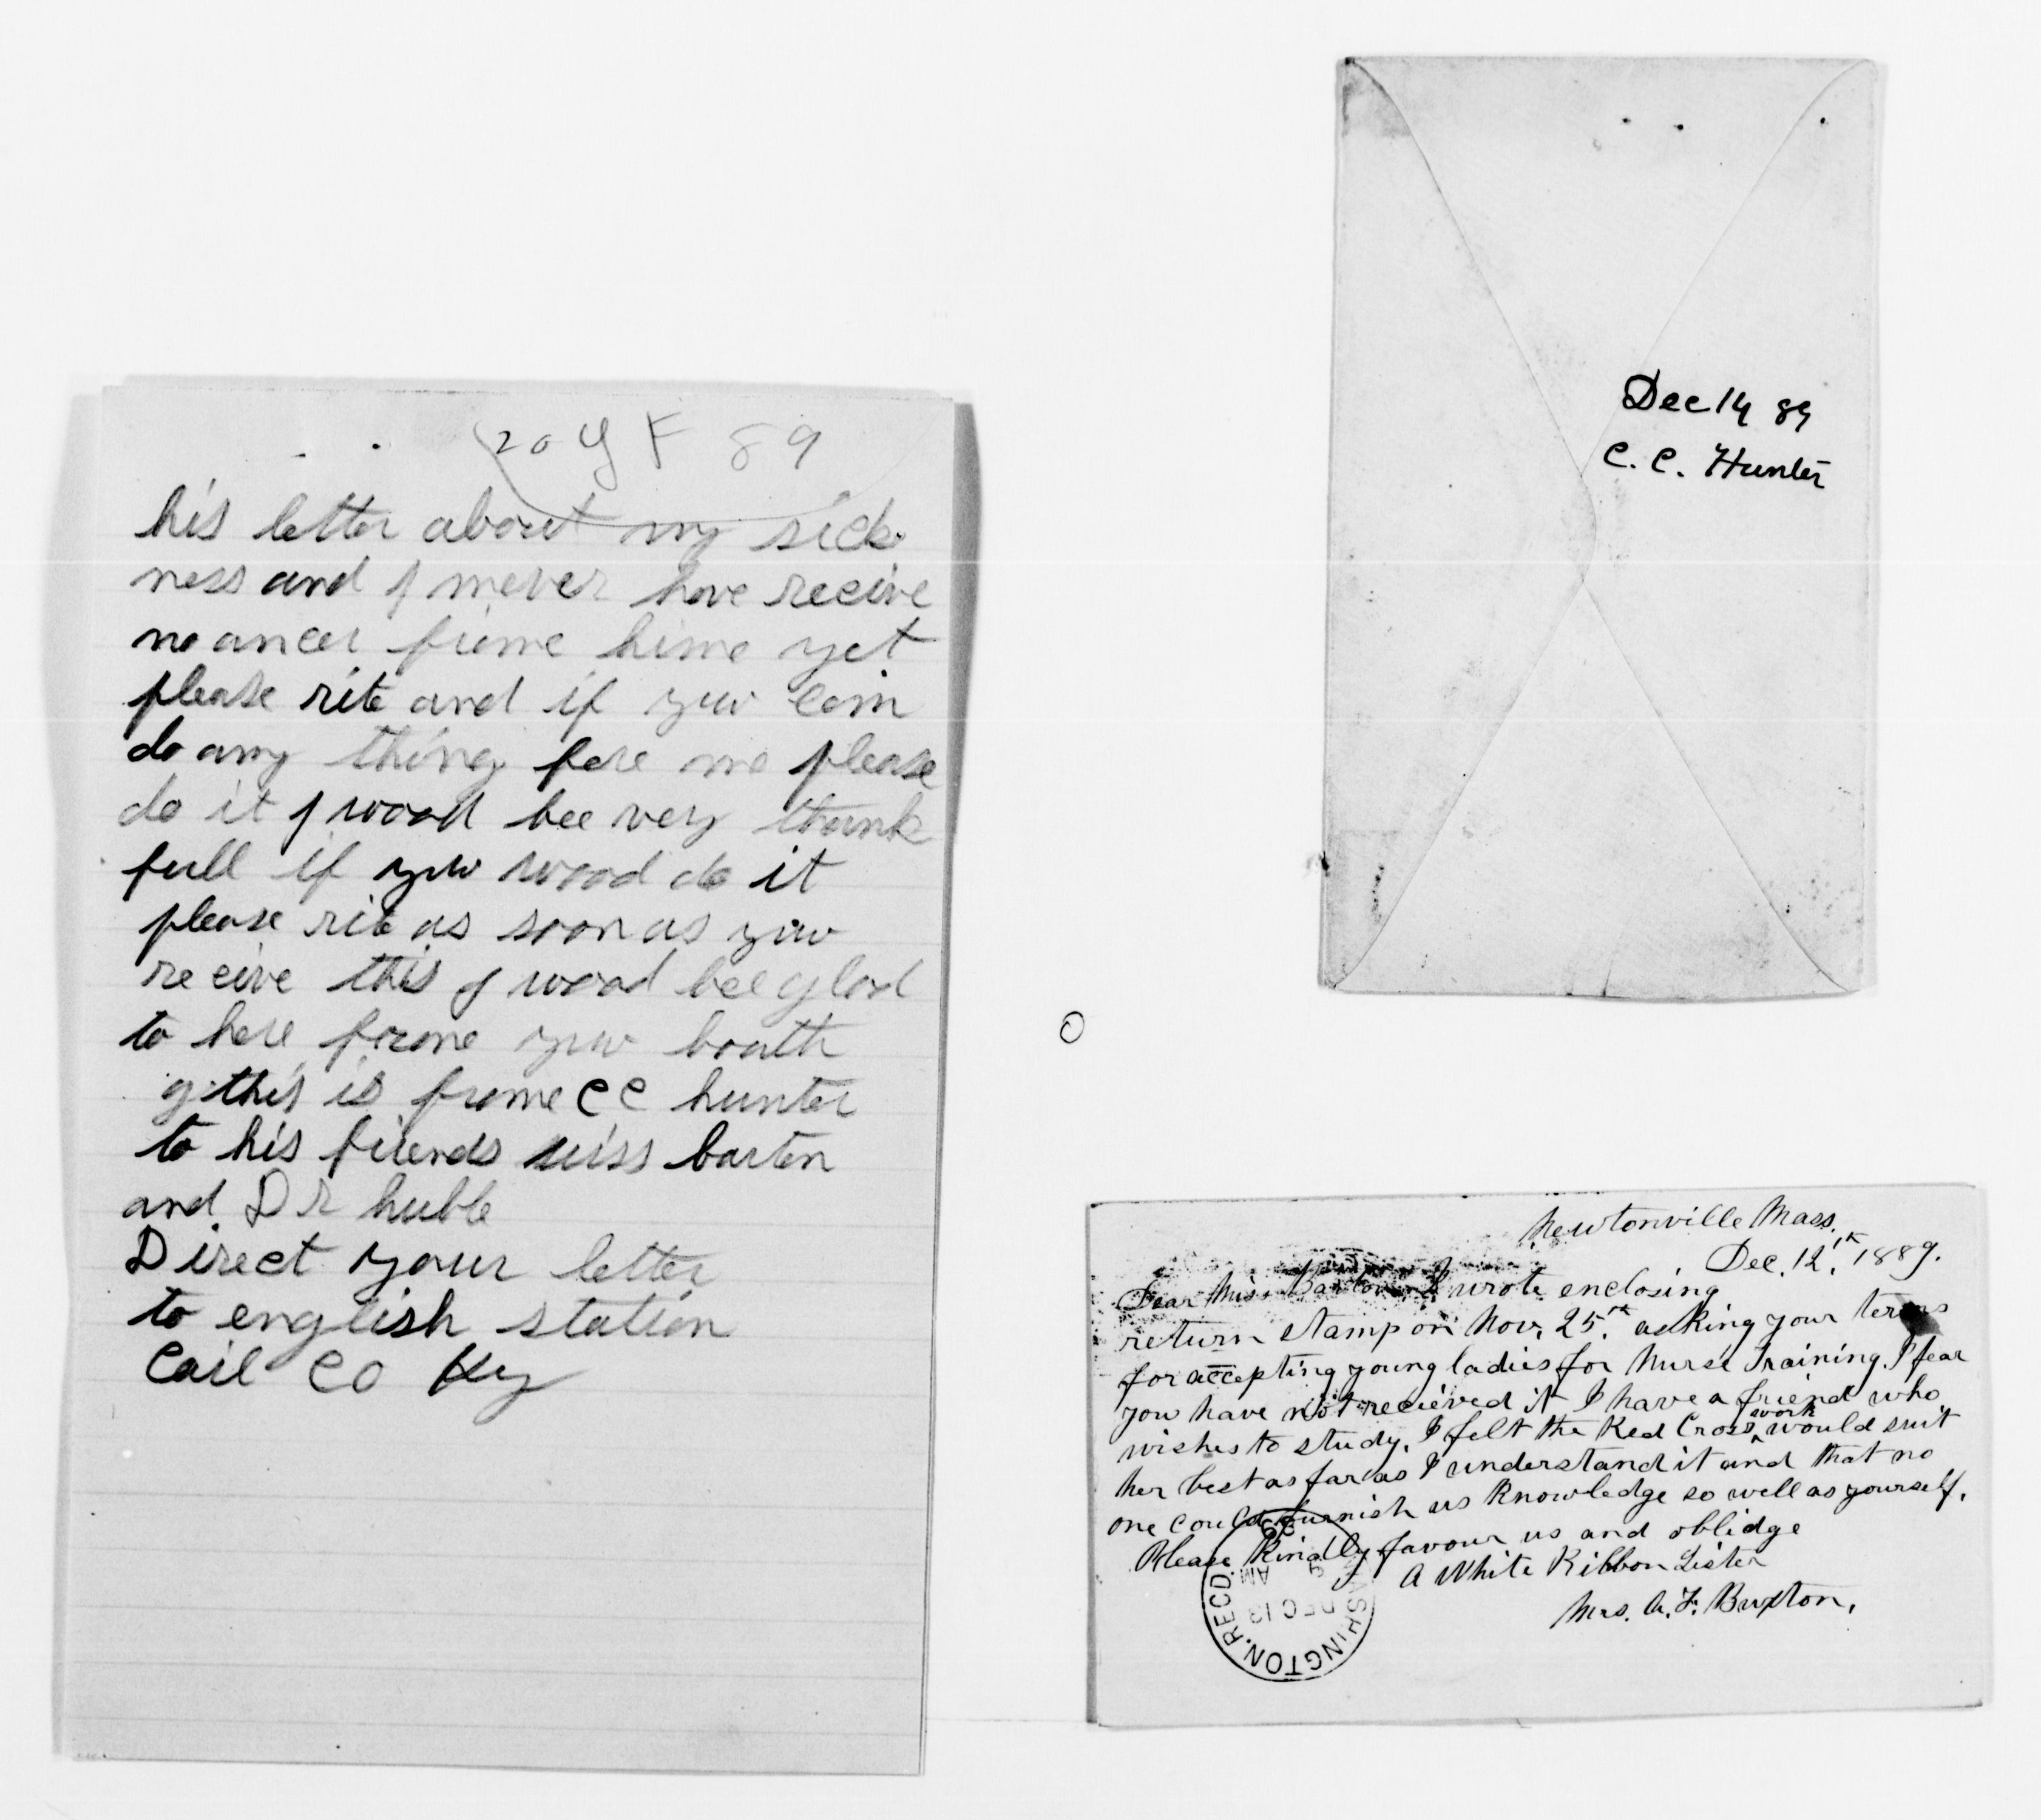 20 y F 89
his letter about my sick
ness and I never have recive
no ancer frome hime yet
please rite and if yuw can
do any thing fore me please
do it I wood bee very thank
full if yuw wood do it
please rite as soon as yuw
receive this I wood bee glad
to here frome yuw bouth
this is frome C C hunter
to his friends miss barton
and Dr huble
Direct your letter
to english station
Cail Co Ky
Dec 14 89
C. C. Hunter
Newtonville Mass.
Dec. 12th, 1889.
Dear Miss Barton I wrote enclosing
return stamp on Nov. 25th asking your terms
for accepting young ladies for Nurse Training. I fear
you have not recieved it I have a friend who
wishes to study, I felt the Red Cross work would suit
her best as far as I understand it and that no
one could furnish us knowledge so well as yourself.
Please kindly favour us and oblidge
A White Ribbon Sister
Mrs. A. F. Buxton.
WASHINGTON. RECD.
DEC 13
AM
89